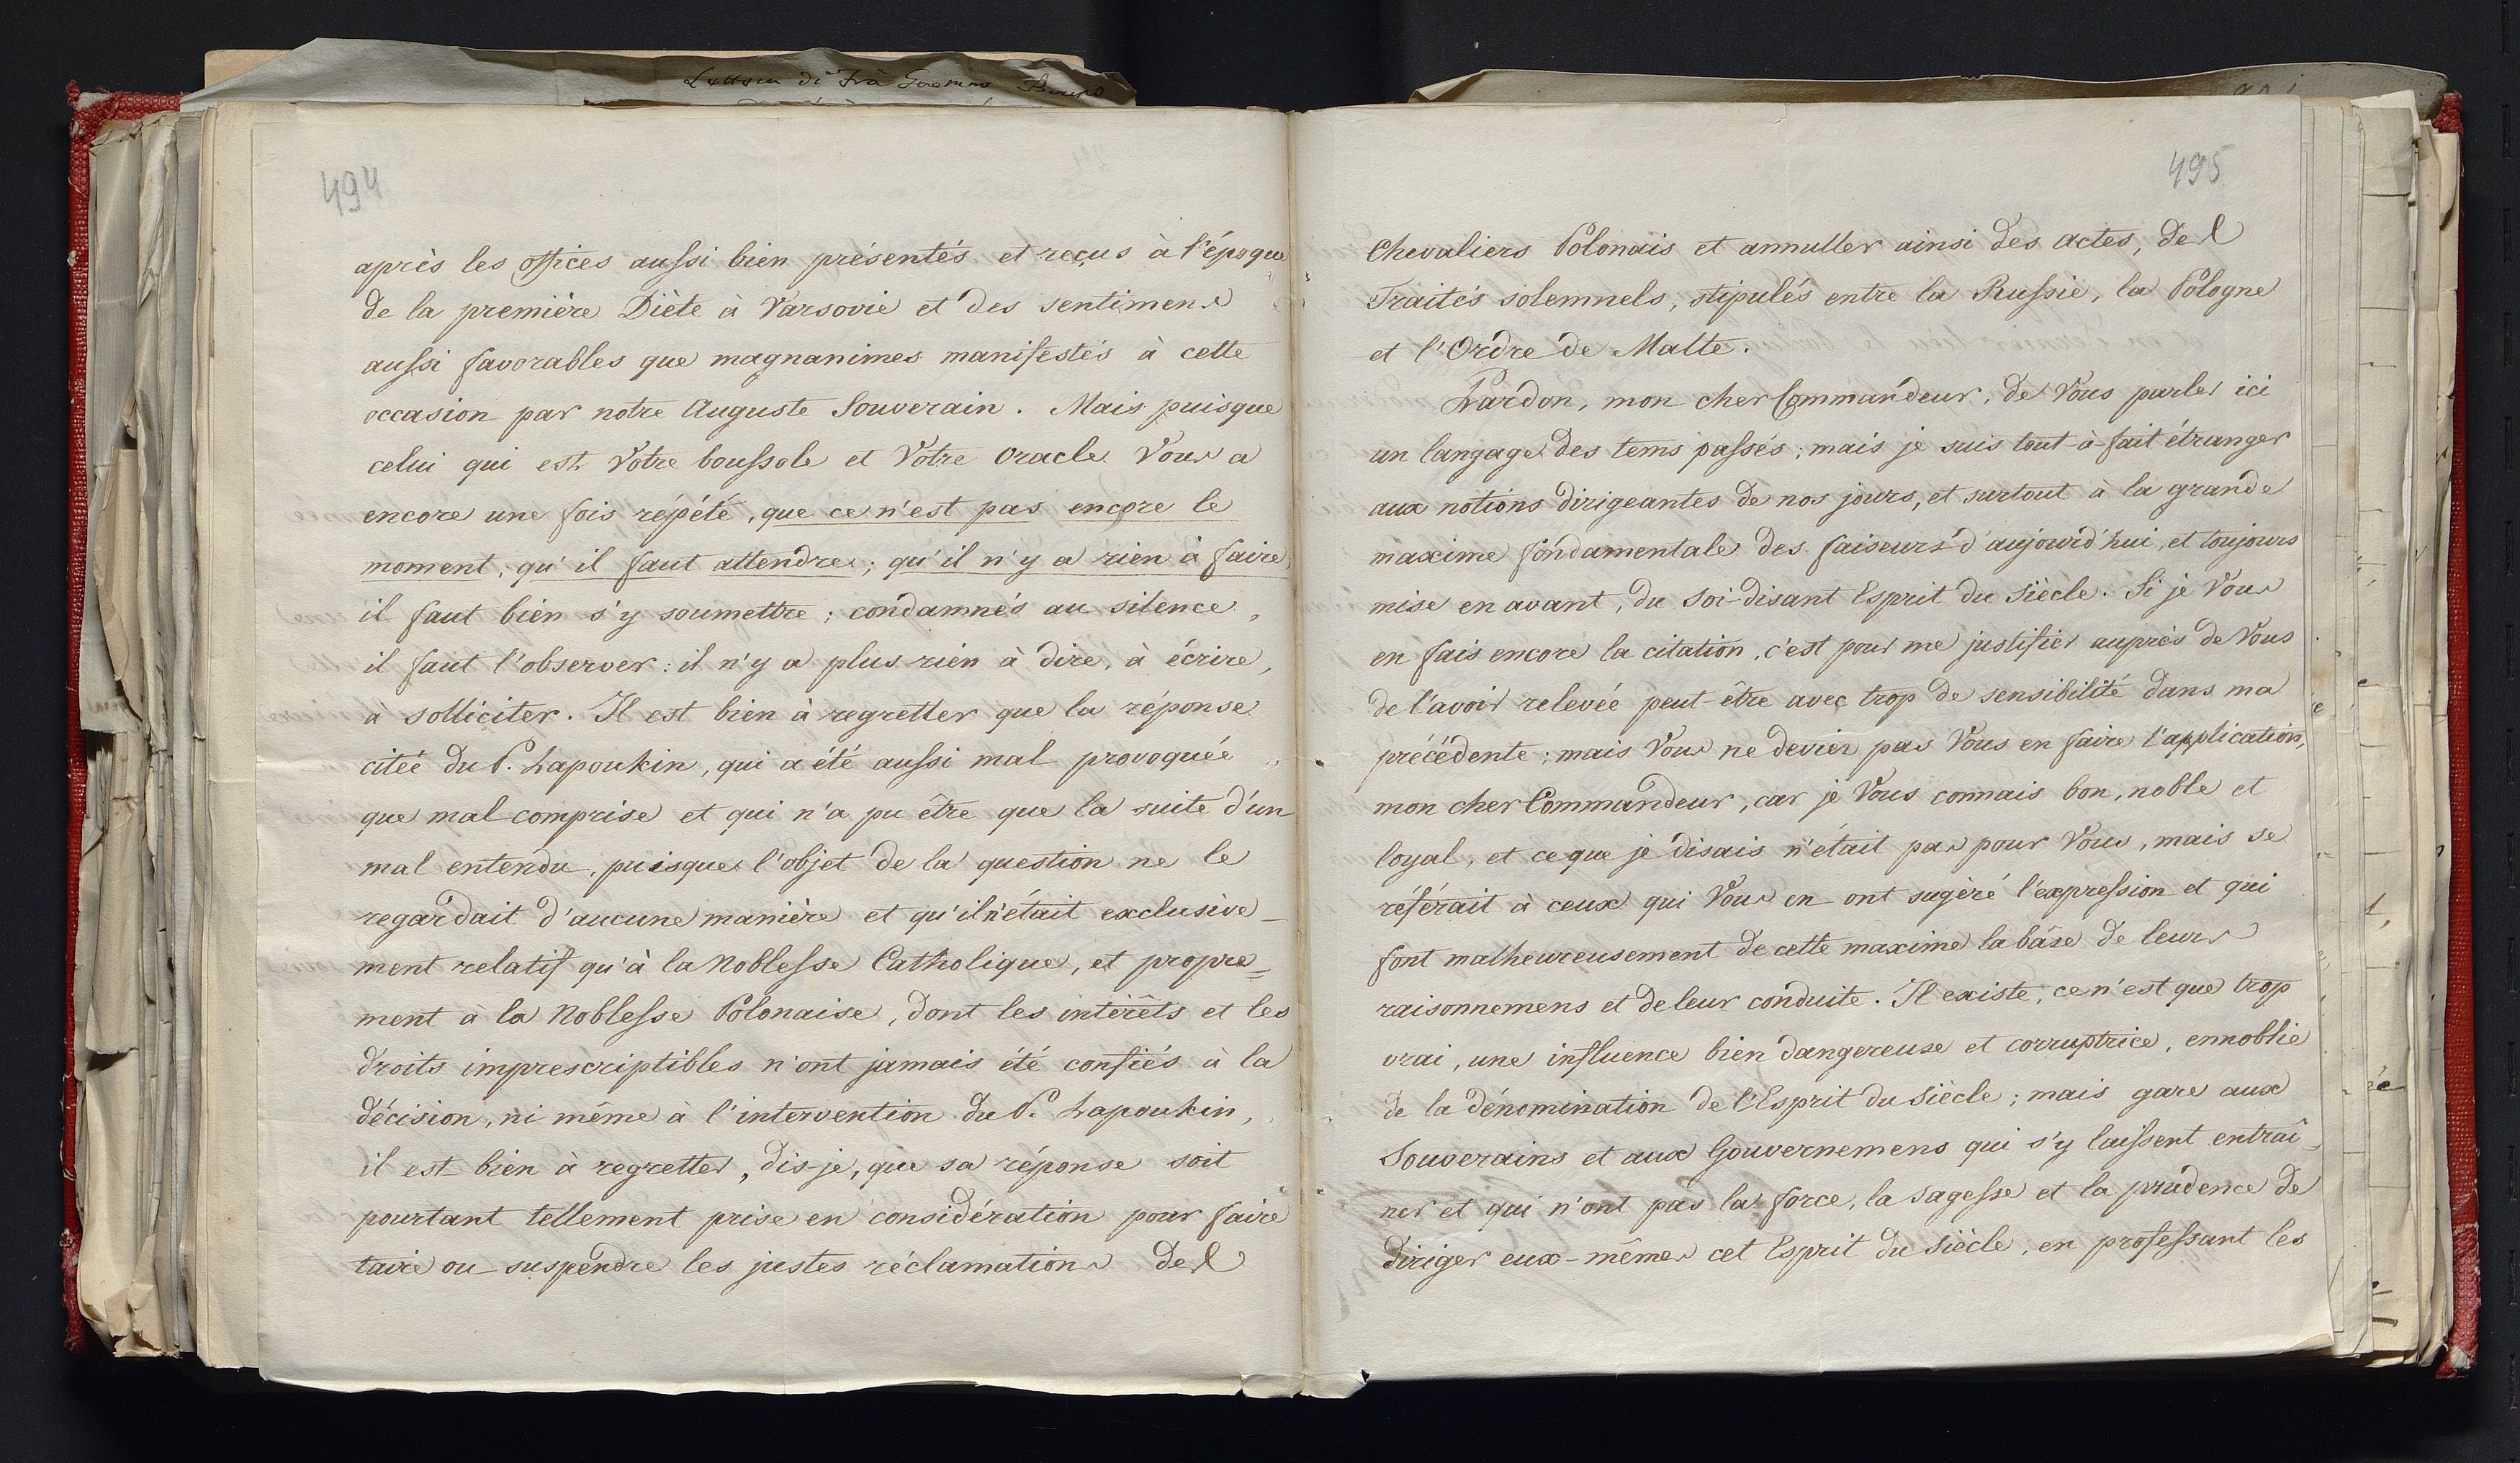 494
après les offices aussi bien présentés et reçus à l'époque
de la première Diète à Varsovie et des sentimens
aussi favorables que magnanimes manifestés à cette
occasion par notre Auguste Souverain. Mais puisque
celui qui est Votre boussole et Votre Oracle Vous a
encore une fois répété, que ce n'est pas encore le
moment, qu'il faut attendre; qu'il n'y a rien à faire,
il faut bien s'y soumettre; condamnés au silence,
il faut l'observer: il n'y a plus rien à dire, à écrire,
à solliciter. Il est bien à regretter que la réponse
citée du P. Lapoukin, qui a été aussi mal provoquée
que mal comprise et qui n'a pu être que la suite d'un
mal entendu, puisque l'objet de la question ne le
regardait d'aucune manière et qu'il n'était exclusive-
ment relatif qu'à la Noblesse Catholique, et propre=
ment à la Noblesse Polonaise, dont les intérêts et les
droits imprescriptibles n'ont jamais été confiés à la
décision, ni même à l'intervention du P. Lapoukin,
il est bien à regretter, dis-je, que sa réponse soit
pourtant tellement prise en considération pour faire
taire ou suspendre les justes réclamations des
495
Chevaliers Polonais et annuller ainsi des actes, des
Traités solemnels, stipulés entre la Russie, la Pologne
et l'Ordre de Malte.
Pardon, mon cher Commandeur, de Vous parler ici
un langage des tems passés; mais je suis tout-à-fait étranger
aux notions dirigeantes de nos jours, et surtout à la grande
maxime fondamentale des faiseurs d'aujourd'hui, et toujours
mise en avant, du soi-disant Esprit du Siècle. Si je Vous
en fais encore la citation, c'est pour me justifier auprès de Vous
de l'avoir relevée peut-être avec trop de sensibilité dans ma
précédente; mais Vous ne deviez pas Vous en faire l'application,
mon cher Commandeur, car je Vous connais bon, noble et
loyal, et ce que je disais n'était pas pour Vous, mais se
référait à ceux qui Vous en ont sugéré l'expression et qui
font malheureusement de cette maxime la bâse de leurs
raisonnemens et de leur conduite. Il existe, ce n'est que trop
vrai, une influence bien dangereuse et corruptrice, ennoblie
de la dénomination de l'Esprit du Siècle; mais gare aux
Souverains et aux Gouvernemens qui s'y laissent entraî-
ner et qui n'ont pas la force, la sagesse et la prudence de
diriger eux-mêmes cet Esprit du Siècle, en professant les